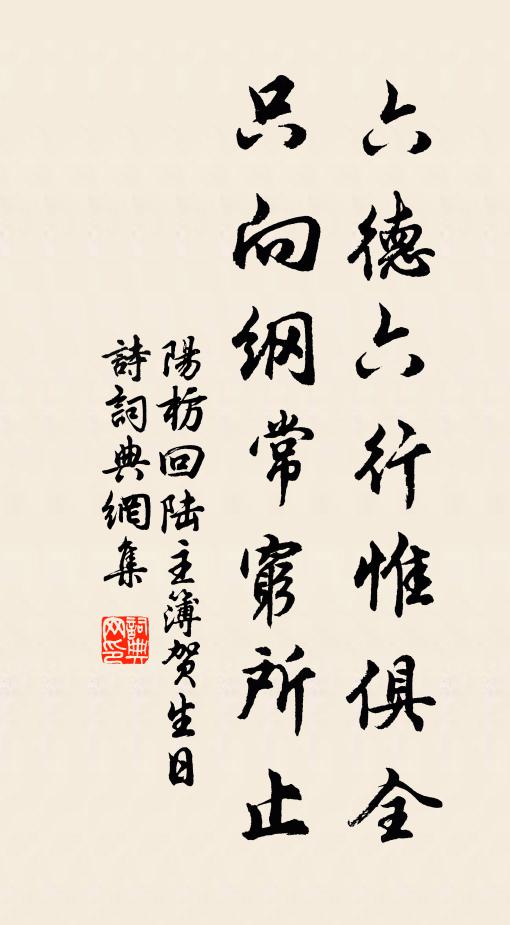 六德六行惟俱全
只向纲常窮所止
陽枋回陆主簿贺生日
詩詞典網集
詞典
网印